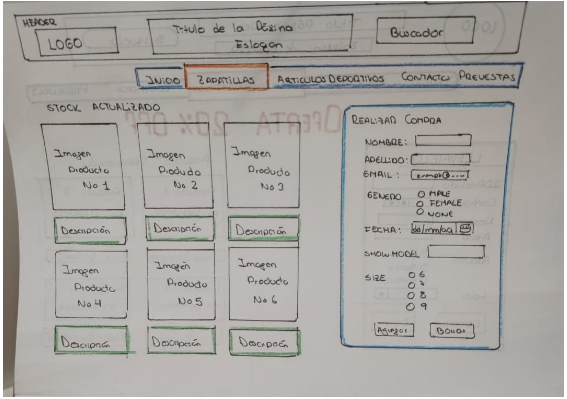 HEADER
LOGO
Titulo de la Pagina
Eslogan
Buscador
INICIO ZAPATILLAS ARTICULOS DEPORTIVOS CONTACTO PREVENTAS
STOCK ACTUALIZADO
OFERTA 20% OFF
Imagen
Producto
No 1
Imagen
Producto
No 2
Imagen
Producto
No 3
Descripción
Descripción
Descripción
Imagen
Producto
No 4
Imagen
Producto
No 5
Imagen
Producto
No 6
Descripción
Descripción
Descripción
REALIZAR COMPRA
NOMBRE:
APELLIDO:
EMAIL:
GENERO O MALE
O FEMALE
O NONE
FECHA: dd/mm/aa
SHOW MODEL
SIZE O 6
O 7
O 8
O 9
Agregar Borrar